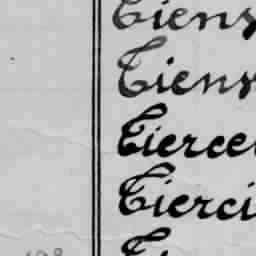 Tiens
Tiens
Tierce
Tierci